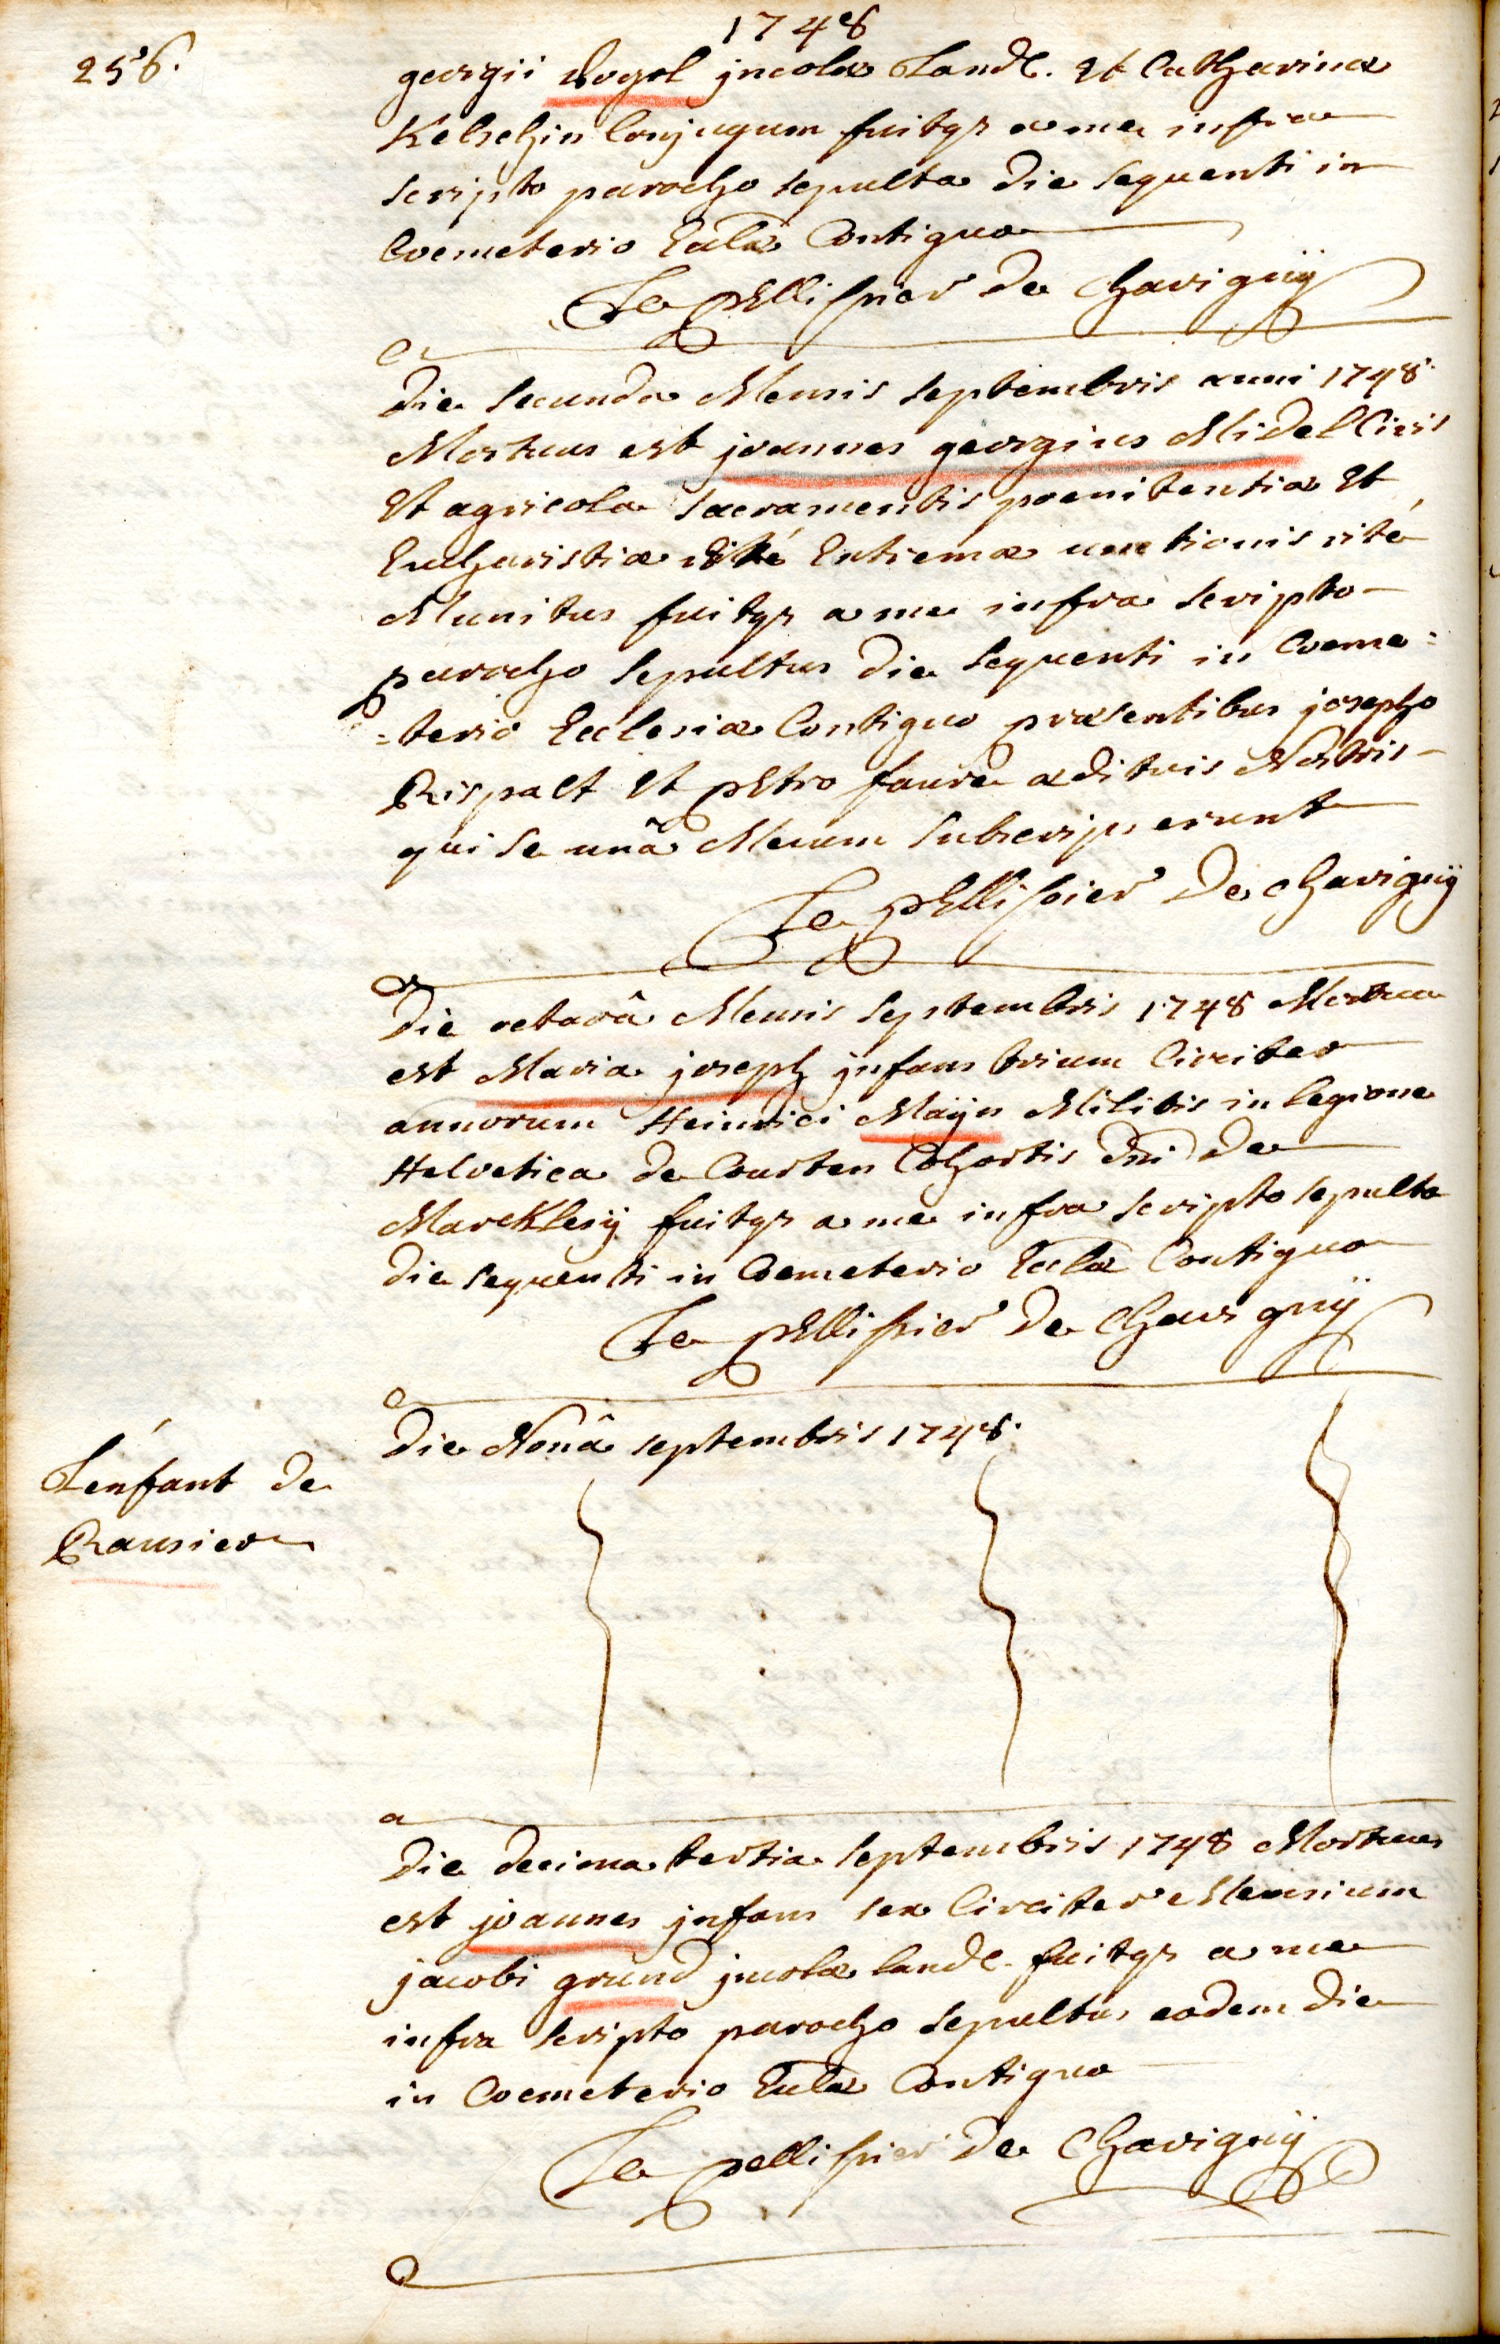 1748
256.
georgii Vogel jncolæ Land&. Et Catharinæ
Kelschin Conjugum fuitqз a me infra
scripto parocho sepulta die sequenti in
Coemeterio Eccłæ Contiguo
Le pEllissier de Chavignÿ
Die secunda Mensis septembris anni 1748.
Mortuus est joannes georgius Midel Civis
Et agricola sacramentis poenitentiæ Et
Eucharistiæ Extremæ unctionis rité
Munitus fuitqз a me infra scripto
parocho sepultus die sequenti in Coeme:
:terio Ecclesiæ Contiguo præsentibus josepho
Rispalt Et pEtro faure ædituis Nostris
qui se unâ Mecum subscripserunt
Le pEllissier de Chavignÿ
Die octavâ Mensis septembris 1748 Mortua
est Maria joseph jnfans trium Circiter
annorum Heinrici Maÿn Militis in legione
Helvetica de Courten Cohortis Dni de
MarcKlesÿ fuitqз a me infra scripto sepulta
die sequenti in Coemeterio Eccłæ Contiguo
Le pEllissier de Chavignÿ
Die Nonâ septembris 1748.
L'enfant de
Rausier
Die decima tertia septembris 1748 Mortuus
est joannes jnfans sex Circiter Mensium
jacobi grund jncolæ land&. fuitqз a me
infra scripto parocho sepultus eodem die
in Coemeterio Eccłæ Contiguo
Le pellissier de Chavignÿ